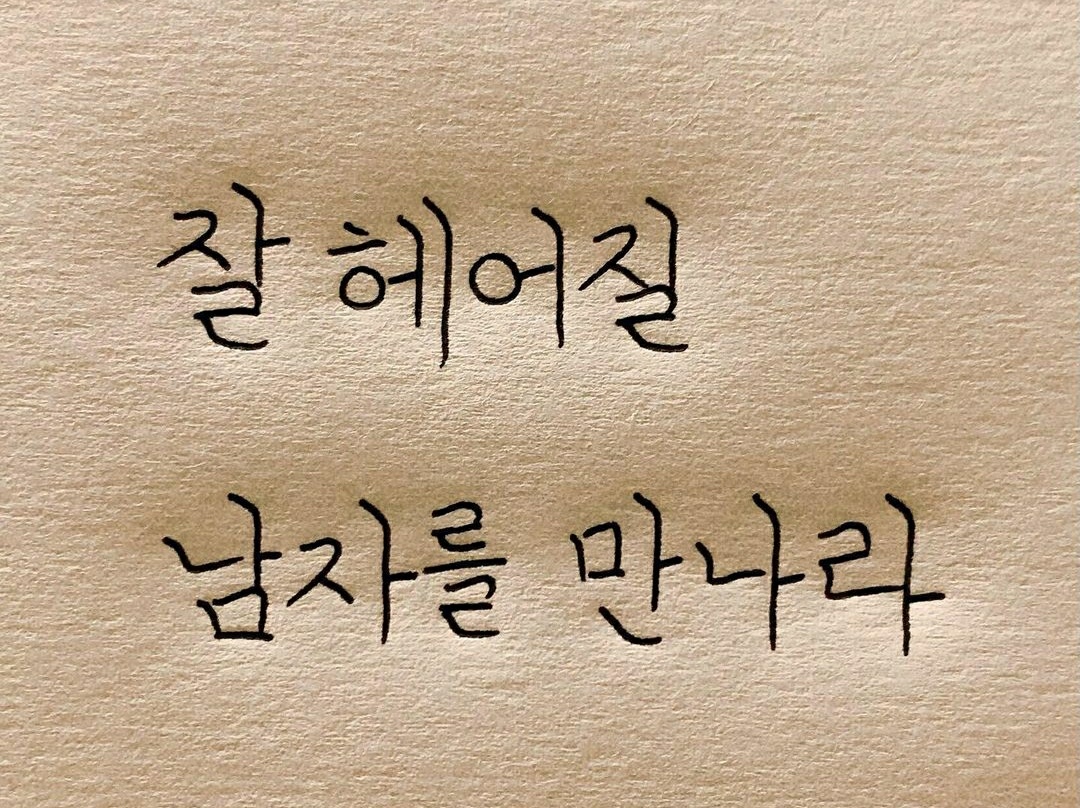 잘 헤어질
남자를 만나라